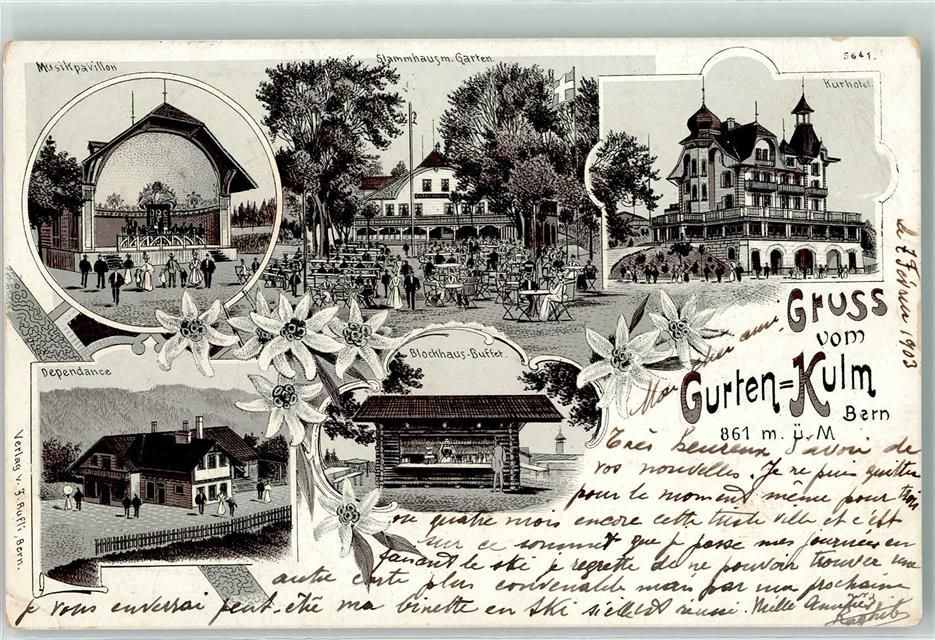 Musikpavillon
Stammhaus m. Garten.
5641.
Kurhotel.
le 7 Février 1903
Gruss
vom
Gurten=Kulm
Bern
861 m. ü. M
Dependance
Blockhaus-Buffet.
Verlag v. F. Rufli, Bern.
Mon cher ami,
Très heureux d'avoir de
vos nouvelles. Je ne puis quitter
pour le moment même pour trois
ou quatre mois encore cette triste ville et c'est
sur ce sommet que je passe mes journées en
faisant le ski je regrette de ne pouvoir trouver une
autre carte plus convenable mais par ma prochaine
je vous enverrai peut-être ma binette en ski si elle est réussi. Mille Amitiés